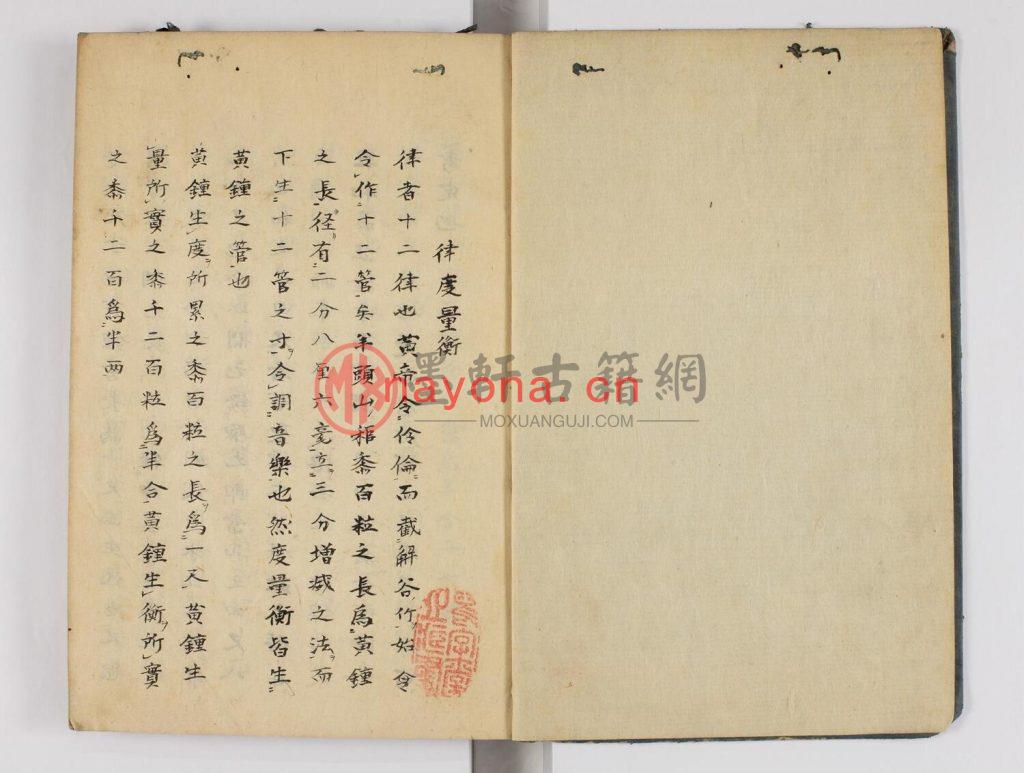 律度量衡
律者十二律也黃帝令伶倫而截解谷竹始令
令作十二管矣羊頭山秬黍百粒之長為黃鐘
之長径有二分八厘六毫立三分增減之法而
下生十二管之寸令調音樂也然度量衡皆生
黃鐘之管也
黃鐘生度所累之黍百粒之長為一尺黃鐘生
量所實之黍千二百粒為半合黃鐘生衡所實
之黍千二百為半兩
墨軒古籍網
mayona.cn
MOXUANGUJI.COM